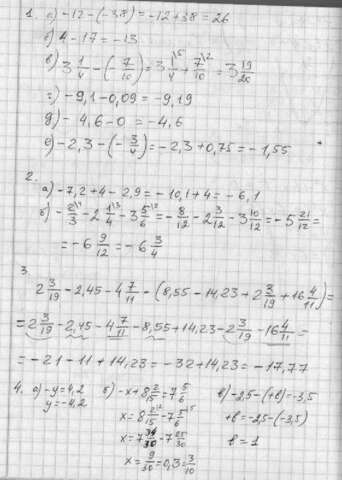 1. а) -12-(-38)=-12+38=26
б) 4-17=-13
в) 3 1/4 - (- 7/10) = 3 1/4 \5 + 7/10 \2 = 3 19/20
г) -9,1-0,09=-9,19
д) -4,6-0=-4,6
е) -2,3-(- 3/4)=-2,3+0,75=-1,55
2.
а) -7,2+4-2,9=-10,1+4=-6,1
б) - 2/3 \4 - 2 1/4 \3 - 3 5/6 \2 = - 8/12 - 2 3/12 - 3 10/12 = -5 21/12 =
= -6 9/12 = -6 3/4
3.
2 3/19 - 2,45 - 4 7/11 - (8,55 - 14,23 + 2 3/19 + 16 4/11) =
= 2 3/19 - 2,45 - 4 7/11 - 8,55 + 14,23 - 2 3/19 - 16 4/11 =
= -21-11+14,23=-32+14,23=-17,77
4. а) -y=4,2
y=-4,2
б) -x+8 2/15 = 7 5/6
x=8 2/15 \2 - 7 5/6 \5
x=7 34/30 - 7 25/30
x= 9/30 = 0,3 = 3/10
в) -2,5-(+в)=-3,5
+в=-2,5-(-3,5)
в=1